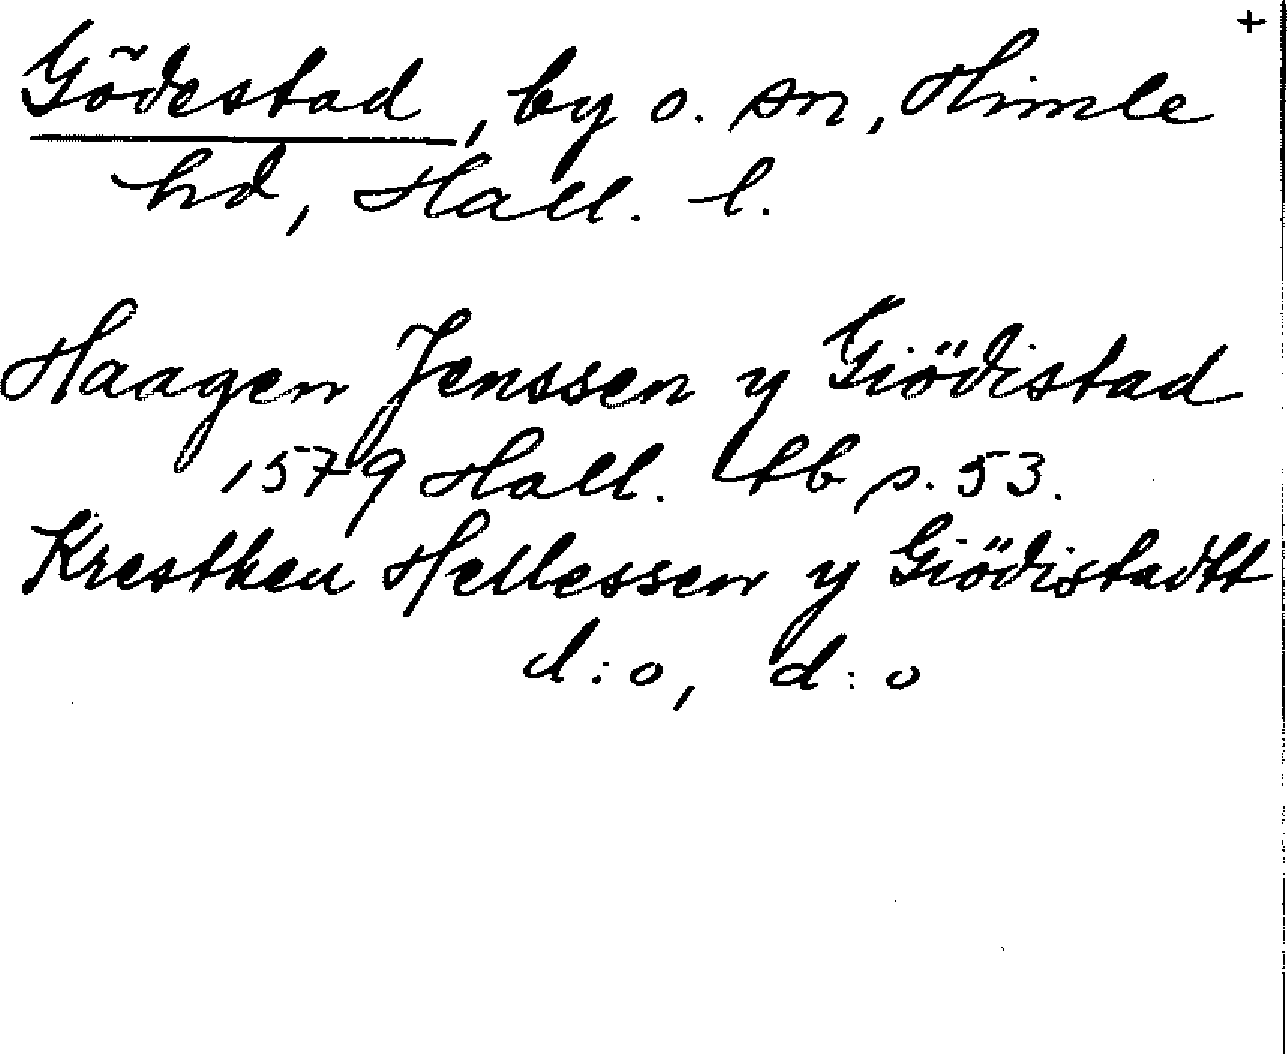 +
Gödestad, by o. sn, Himle
hd, Hall. l.
Haagen Jenssen y Giödistad
1579 Hall. tb p. 53.
Kresthen Hellessen y Giödistadtt
d:o, d:o